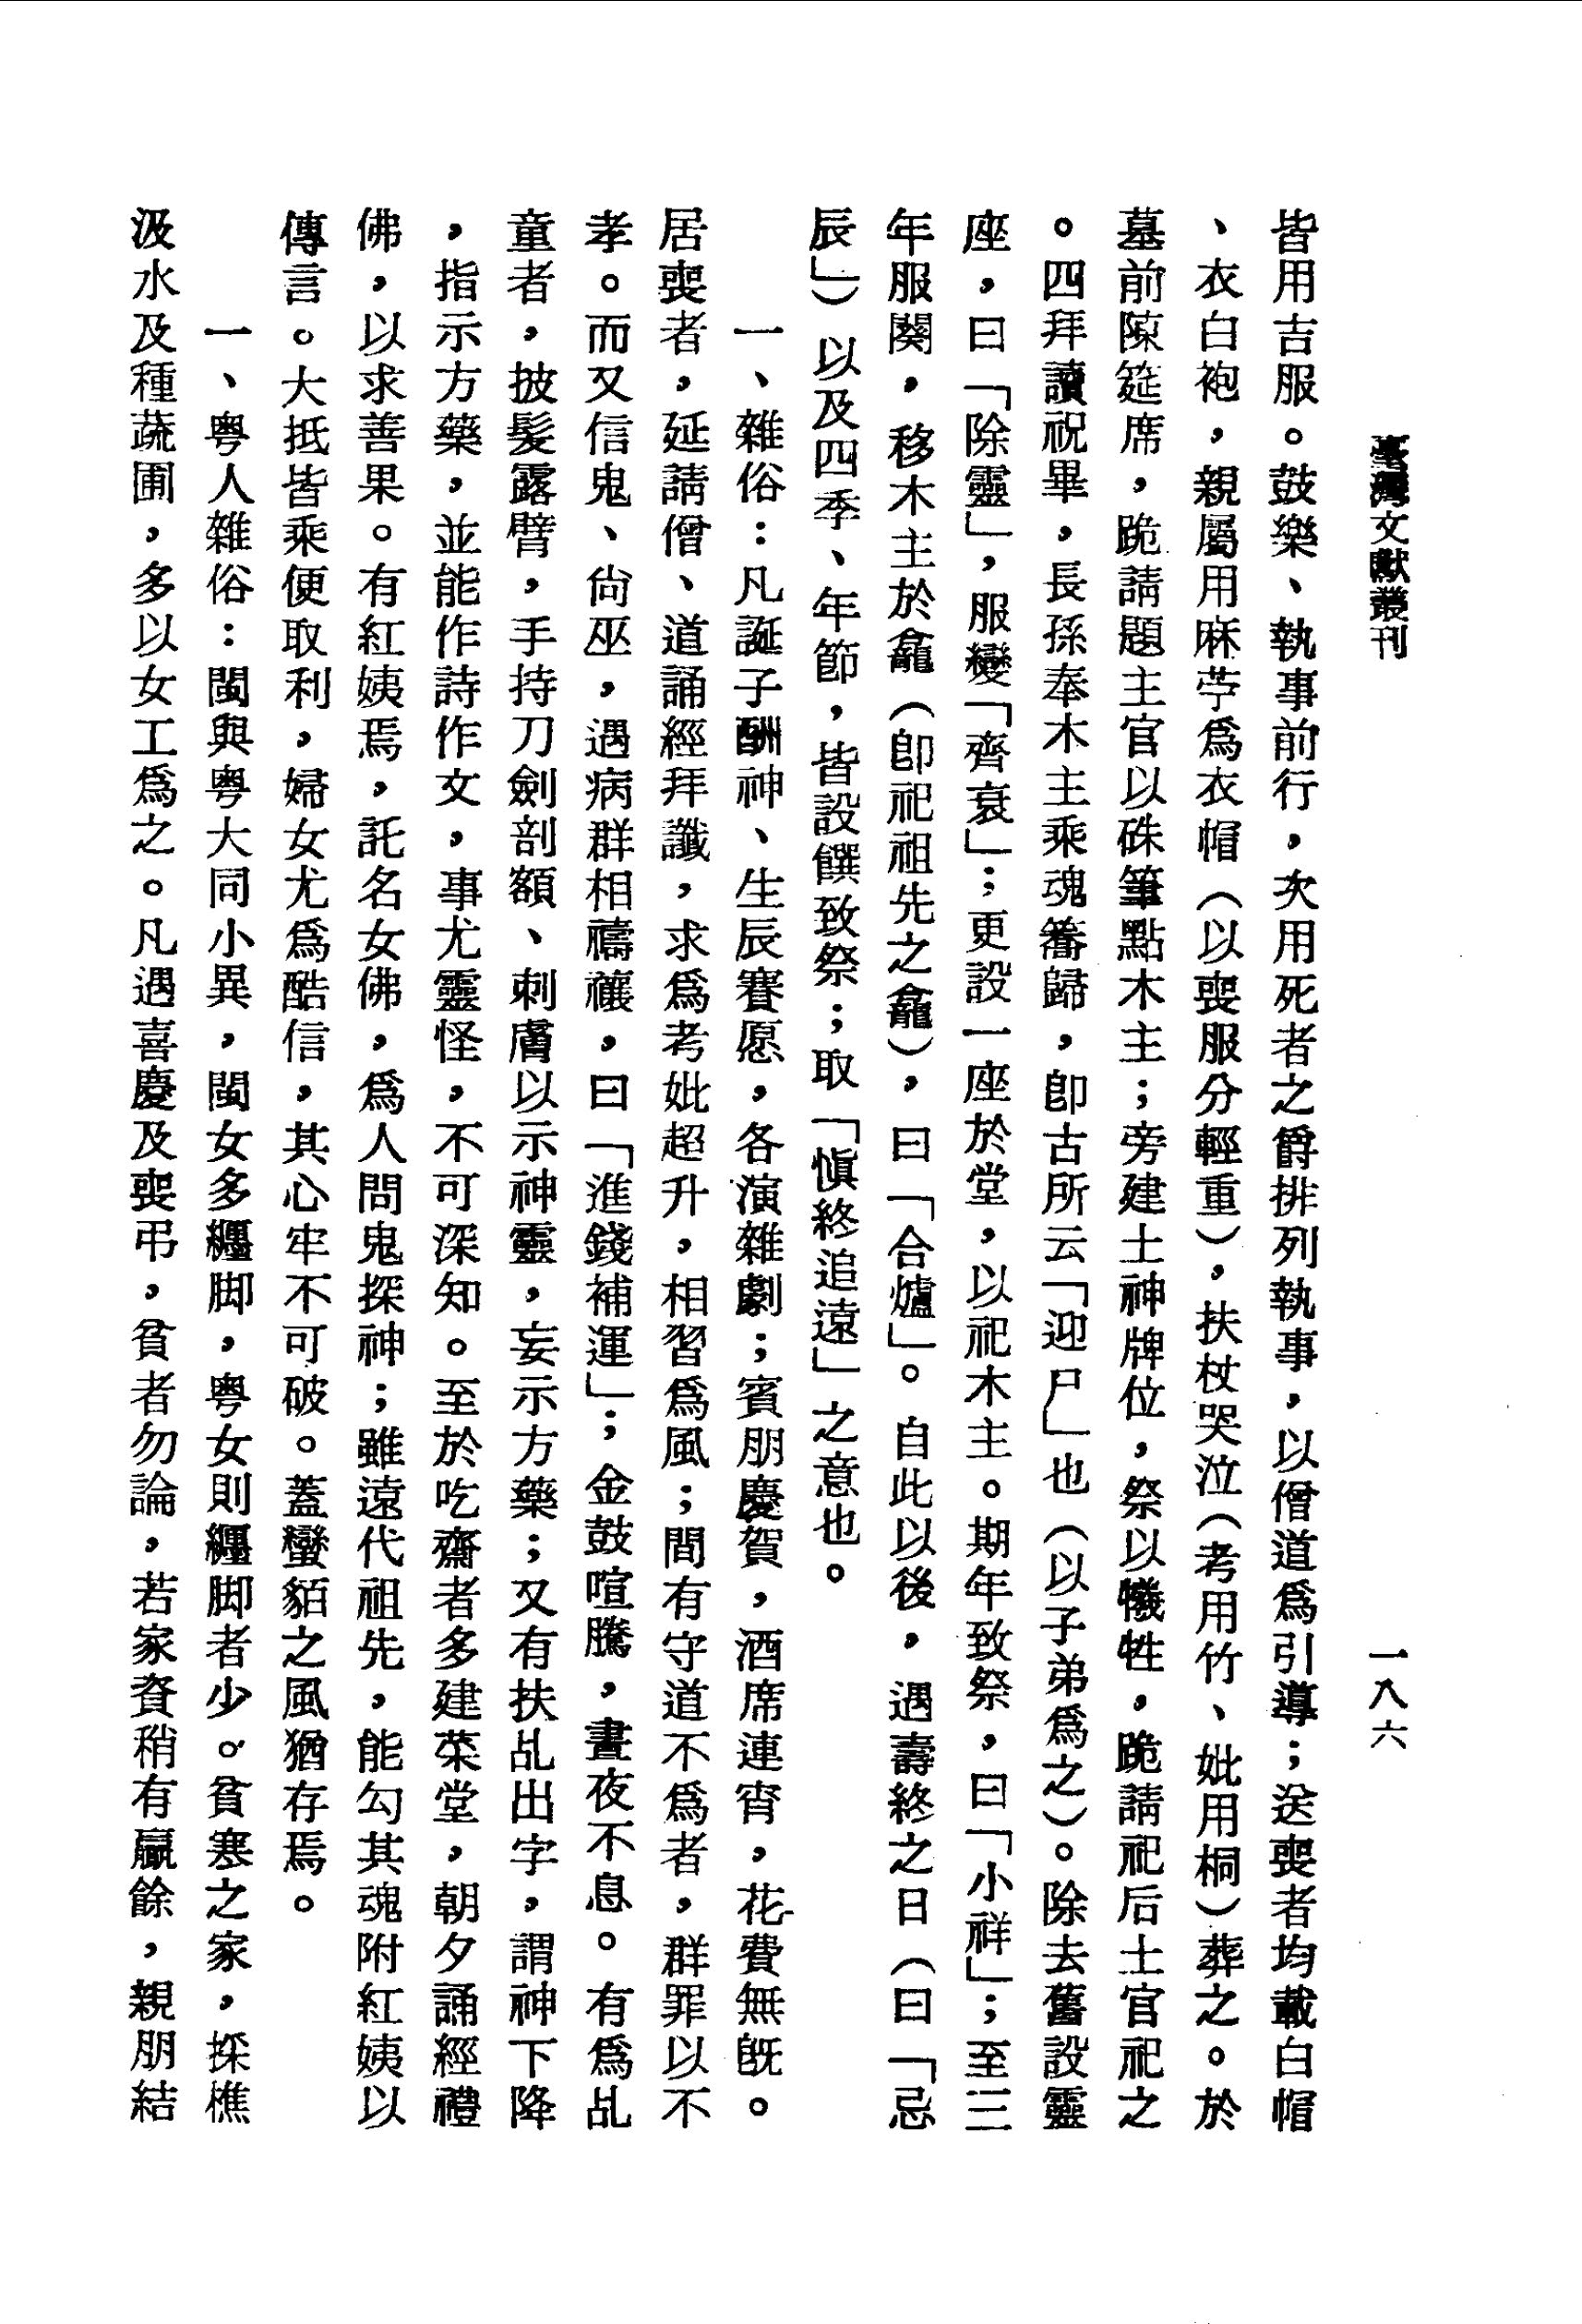 臺灣文獻叢刊
一八六
皆用吉服。鼓樂、執事前行，次用死者之爵排列執事，以僧道爲引導；送喪者均載白帽
、衣白袍，親屬用麻苧爲衣帽（以喪服分輕重），扶杖哭泣（考用竹、妣用桐）葬之。於
墓前陳筵席，跪請題主官以硃筆點木主；旁建土神牌位，祭以犧牲，跪請祀后土官祀之
。四拜讀祝畢，長孫奉木主乘魂簥歸，卽古所云「迎尸」也（以子弟爲之）。除去舊設靈
座，曰「除靈」，服變「齊衰」；更設一座於堂，以祀木主。期年致祭，曰「小祥」；至三
年服闋，移木主於龕（卽祀祖先之龕），曰「合爐」。自此以後，遇壽終之日（曰「忌
辰」）以及四季、年節，皆設饌致祭；取「愼終追遠」之意也。
一、雜俗：凡誕子酬神、生辰賽愿，各演雜劇；賓朋慶賀，酒席連宵，花費無旣。
居喪者，延請僧、道誦經拜讖，求爲考妣超升，相習爲風；間有守道不爲者，群罪以不
孝。而又信鬼、尙巫，遇病群相禱禳，曰「進錢補運」；金鼓喧騰，晝夜不息。有爲乩
童者，披髮露臂，手持刀劍剖額、刺膚以示神靈，妄示方藥；又有扶乩出字，謂神下降
，指示方藥，並能作詩作文，事尤靈怪，不可深知。至於吃齋者多建菜堂，朝夕誦經禮
佛，以求善果。有紅姨焉，託名女佛，爲人問鬼探神；雖遠代祖先，能勾其魂附紅姨以
傳言。大抵皆乘便取利，婦女尤爲酷信，其心牢不可破。蓋蠻貊之風猶存焉。
一、粵人雜俗：閩與粵大同小異，閩女多纏脚，粵女則纏脚者少。貧寒之家，採樵
汲水及種蔬圃，多以女工爲之。凡遇喜慶及喪弔，貧者勿論，若家資稍有贏餘，親朋結